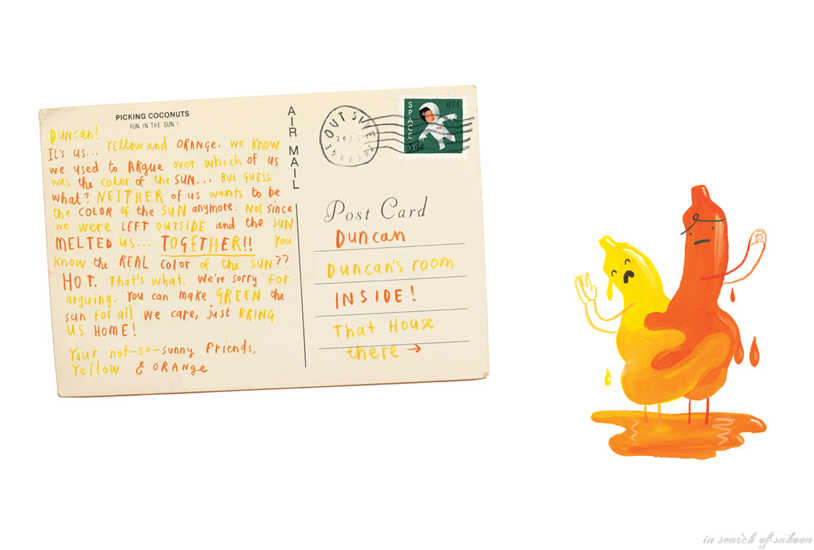 PICKING COCONUTS
FUN IN THE SUN!
Duncan!
It's us... Yellow and ORANGE. We know
we used to ARGUE over which of us
was the color of the SUN... But GUESS
what? NEITHER of us wants to be
the COLOR of the SUN anymore. Not since
we were LEFT OUTSIDE and the SUN
MELTED us... TOGETHER!! You
know the REAL color of the SUN??
HOT. That's what. We're sorry for
arguing. You can make GREEN the
sun for all we care, just BRING
US HOME!
Your not-so-sunny friends,
Yellow & ORANGE
AIR MAIL
OUTSIDE
SPACE
USA
Post Card
Duncan
Duncan's room
INSIDE!
That House
there →
in search of sukoon